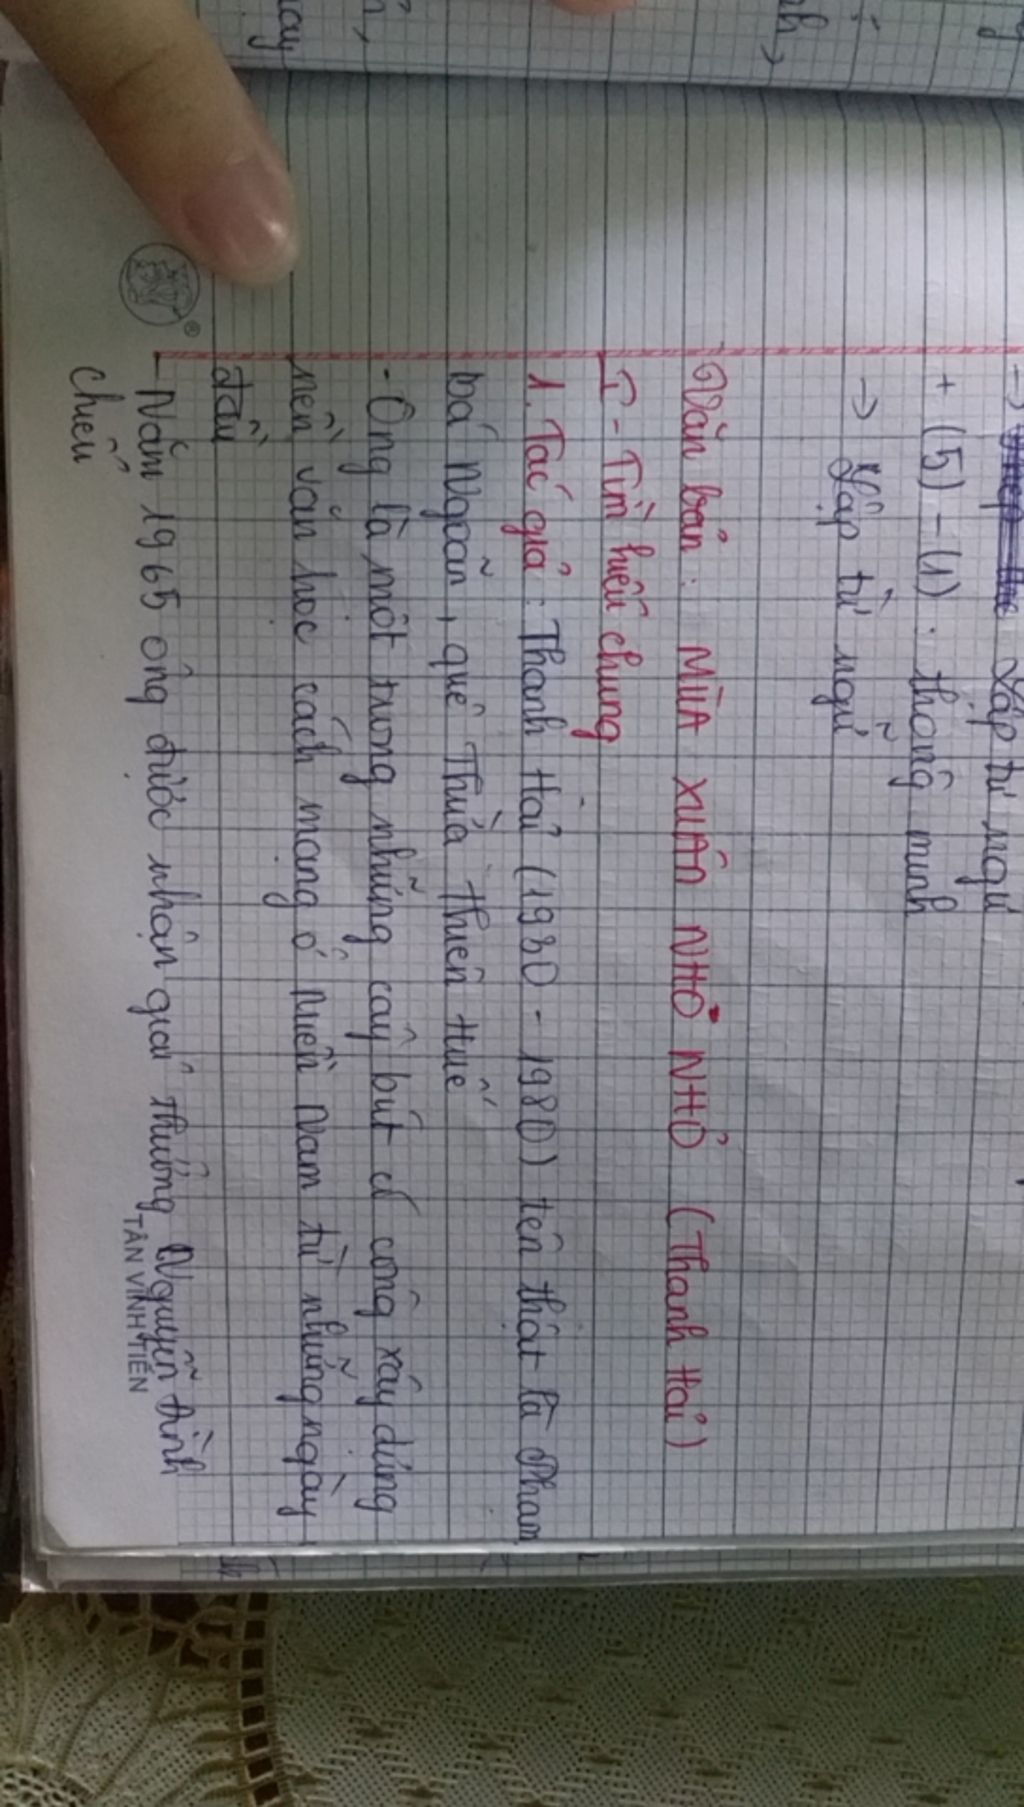 → Lặp từ ngữ
+ (5) - (1) : thông minh
→ Lặp từ ngữ
Văn bản : MÙA XUÂN NHO NHỎ (Thanh Hải)
I - Tìm hiểu chung
1. Tác giả : Thanh Hải (1930 - 1980) tên thật là Phạm
bá Ngoãn, quê Thừa thiên Huế
- Ông là một trong những cây bút có công xây dựng
nền văn học cách mạng ở Miền Nam từ những ngày
đầu
- Năm 1965 ông được nhận giải thưởng Nguyễn Đình
chiểu
TÂN VĨNH TIẾN